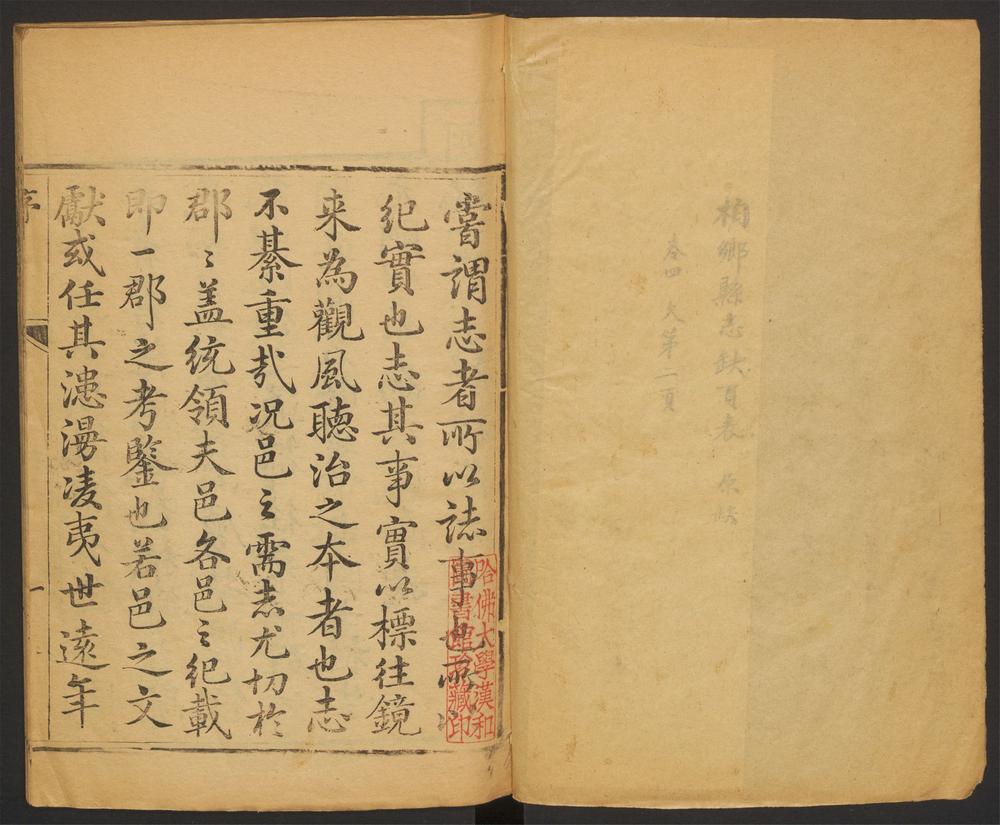 柏鄉縣志缺頁表 原缺
卷四 文第二頁
嘗謂志者所以誌事也所以
紀實也志其事實以標往鏡
来為觀風聽治之本者也志
不綦重㢤况邑之需志尤切於
郡〻盖統領夫邑各邑之紀載
即一郡之考鑒也若邑之文
獻或任其漶漫凌夷世遠年
序
一
哈佛大學漢和
圖書館珍藏印